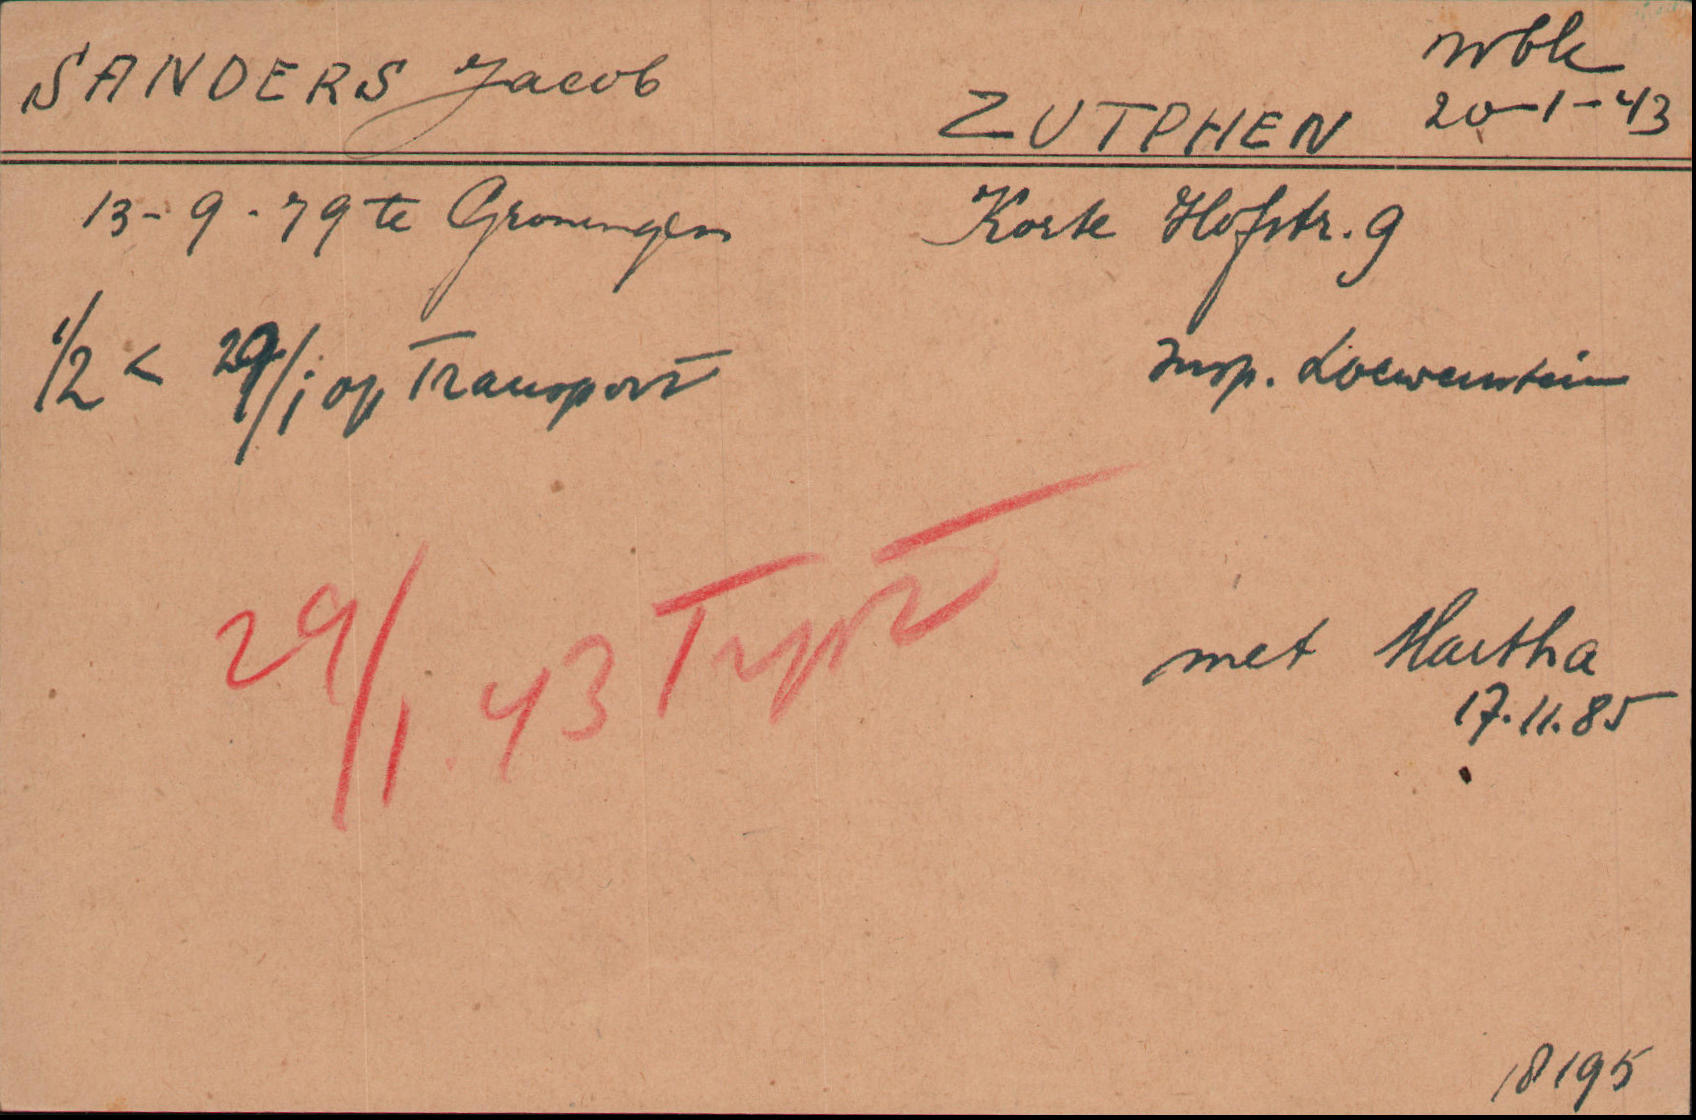 SANDERS Jacob
ZUTPHEN
Wbk
20-1-43
13-9-79 te Groningen
Korte Hofstr. 9
1/2 < 29/1 op Transport
Insp. Loewenstein
29/1. 43 Trpt
met Martha
17.11.85
18195